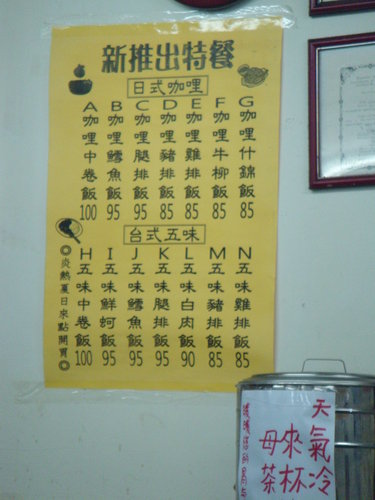 新推出特餐
日式咖哩
A 咖哩中卷飯 100
B 咖哩鱈魚飯 95
C 咖哩腿排飯 95
D 咖哩豬排飯 85
E 咖哩雞排飯 85
F 咖哩牛柳飯 85
G 咖哩什錦飯 85
台式五味
H 五味中卷飯 100
I 五味鮮蚵飯 95
J 五味鱈魚飯 95
K 五味腿排飯 95
L 五味白肉飯 90
M 五味豬排飯 85
N 五味雞排飯 85
◎炎熱夏日來點開胃◎
天氣冷
來杯
母茶